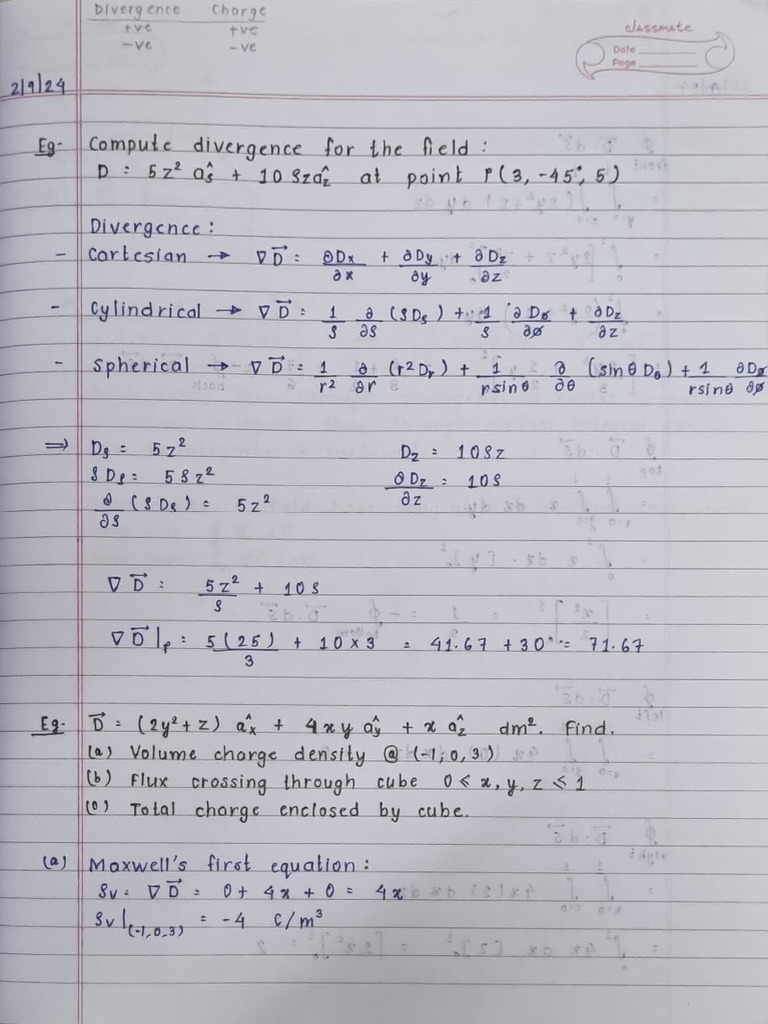 Divergence Charge
+ve +ve
-ve -ve
classmate
Date
Page
2/9/24
Eg- Compute divergence for the field :
D = 5z² âρ + 10ρzâz at point P(3, -45°, 5)
Divergence :
- Cartesian → ∇D⃗ = ∂Dx/∂x + ∂Dy/∂y + ∂Dz/∂z
- Cylindrical → ∇D⃗ = 1/ρ ∂/∂ρ (ρDρ) + 1/ρ ∂Dø/∂ø + ∂Dz/∂z
- Spherical → ∇D⃗ = 1/r² ∂/∂r (r²Dr) + 1/rsinθ ∂/∂θ (sinθ Dθ) + 1/rsinθ ∂Dø/∂ø
⇒ Dρ = 5z² Dz = 10ρz
ρDρ = 5ρz² ∂Dz/∂z = 10ρ
∂/∂ρ (ρDρ) = 5z²
∇D⃗ = 5z²/ρ + 10ρ
∇D⃗|p = 5(25)/3 + 10×3 = 41.67 + 30 = 71.67
Eg- D⃗ = (2y²+z) âx + 4xy ây + x âz dm². Find.
(a) Volume charge density @ (-1, 0, 3)
(b) Flux crossing through cube 0 ≤ x, y, z ≤ 1
(c) Total charge enclosed by cube.
(a) Maxwell's first equation :
ρv = ∇D⃗ = 0 + 4x + 0 = 4x
ρv|(-1,0,3) = -4 C/m³